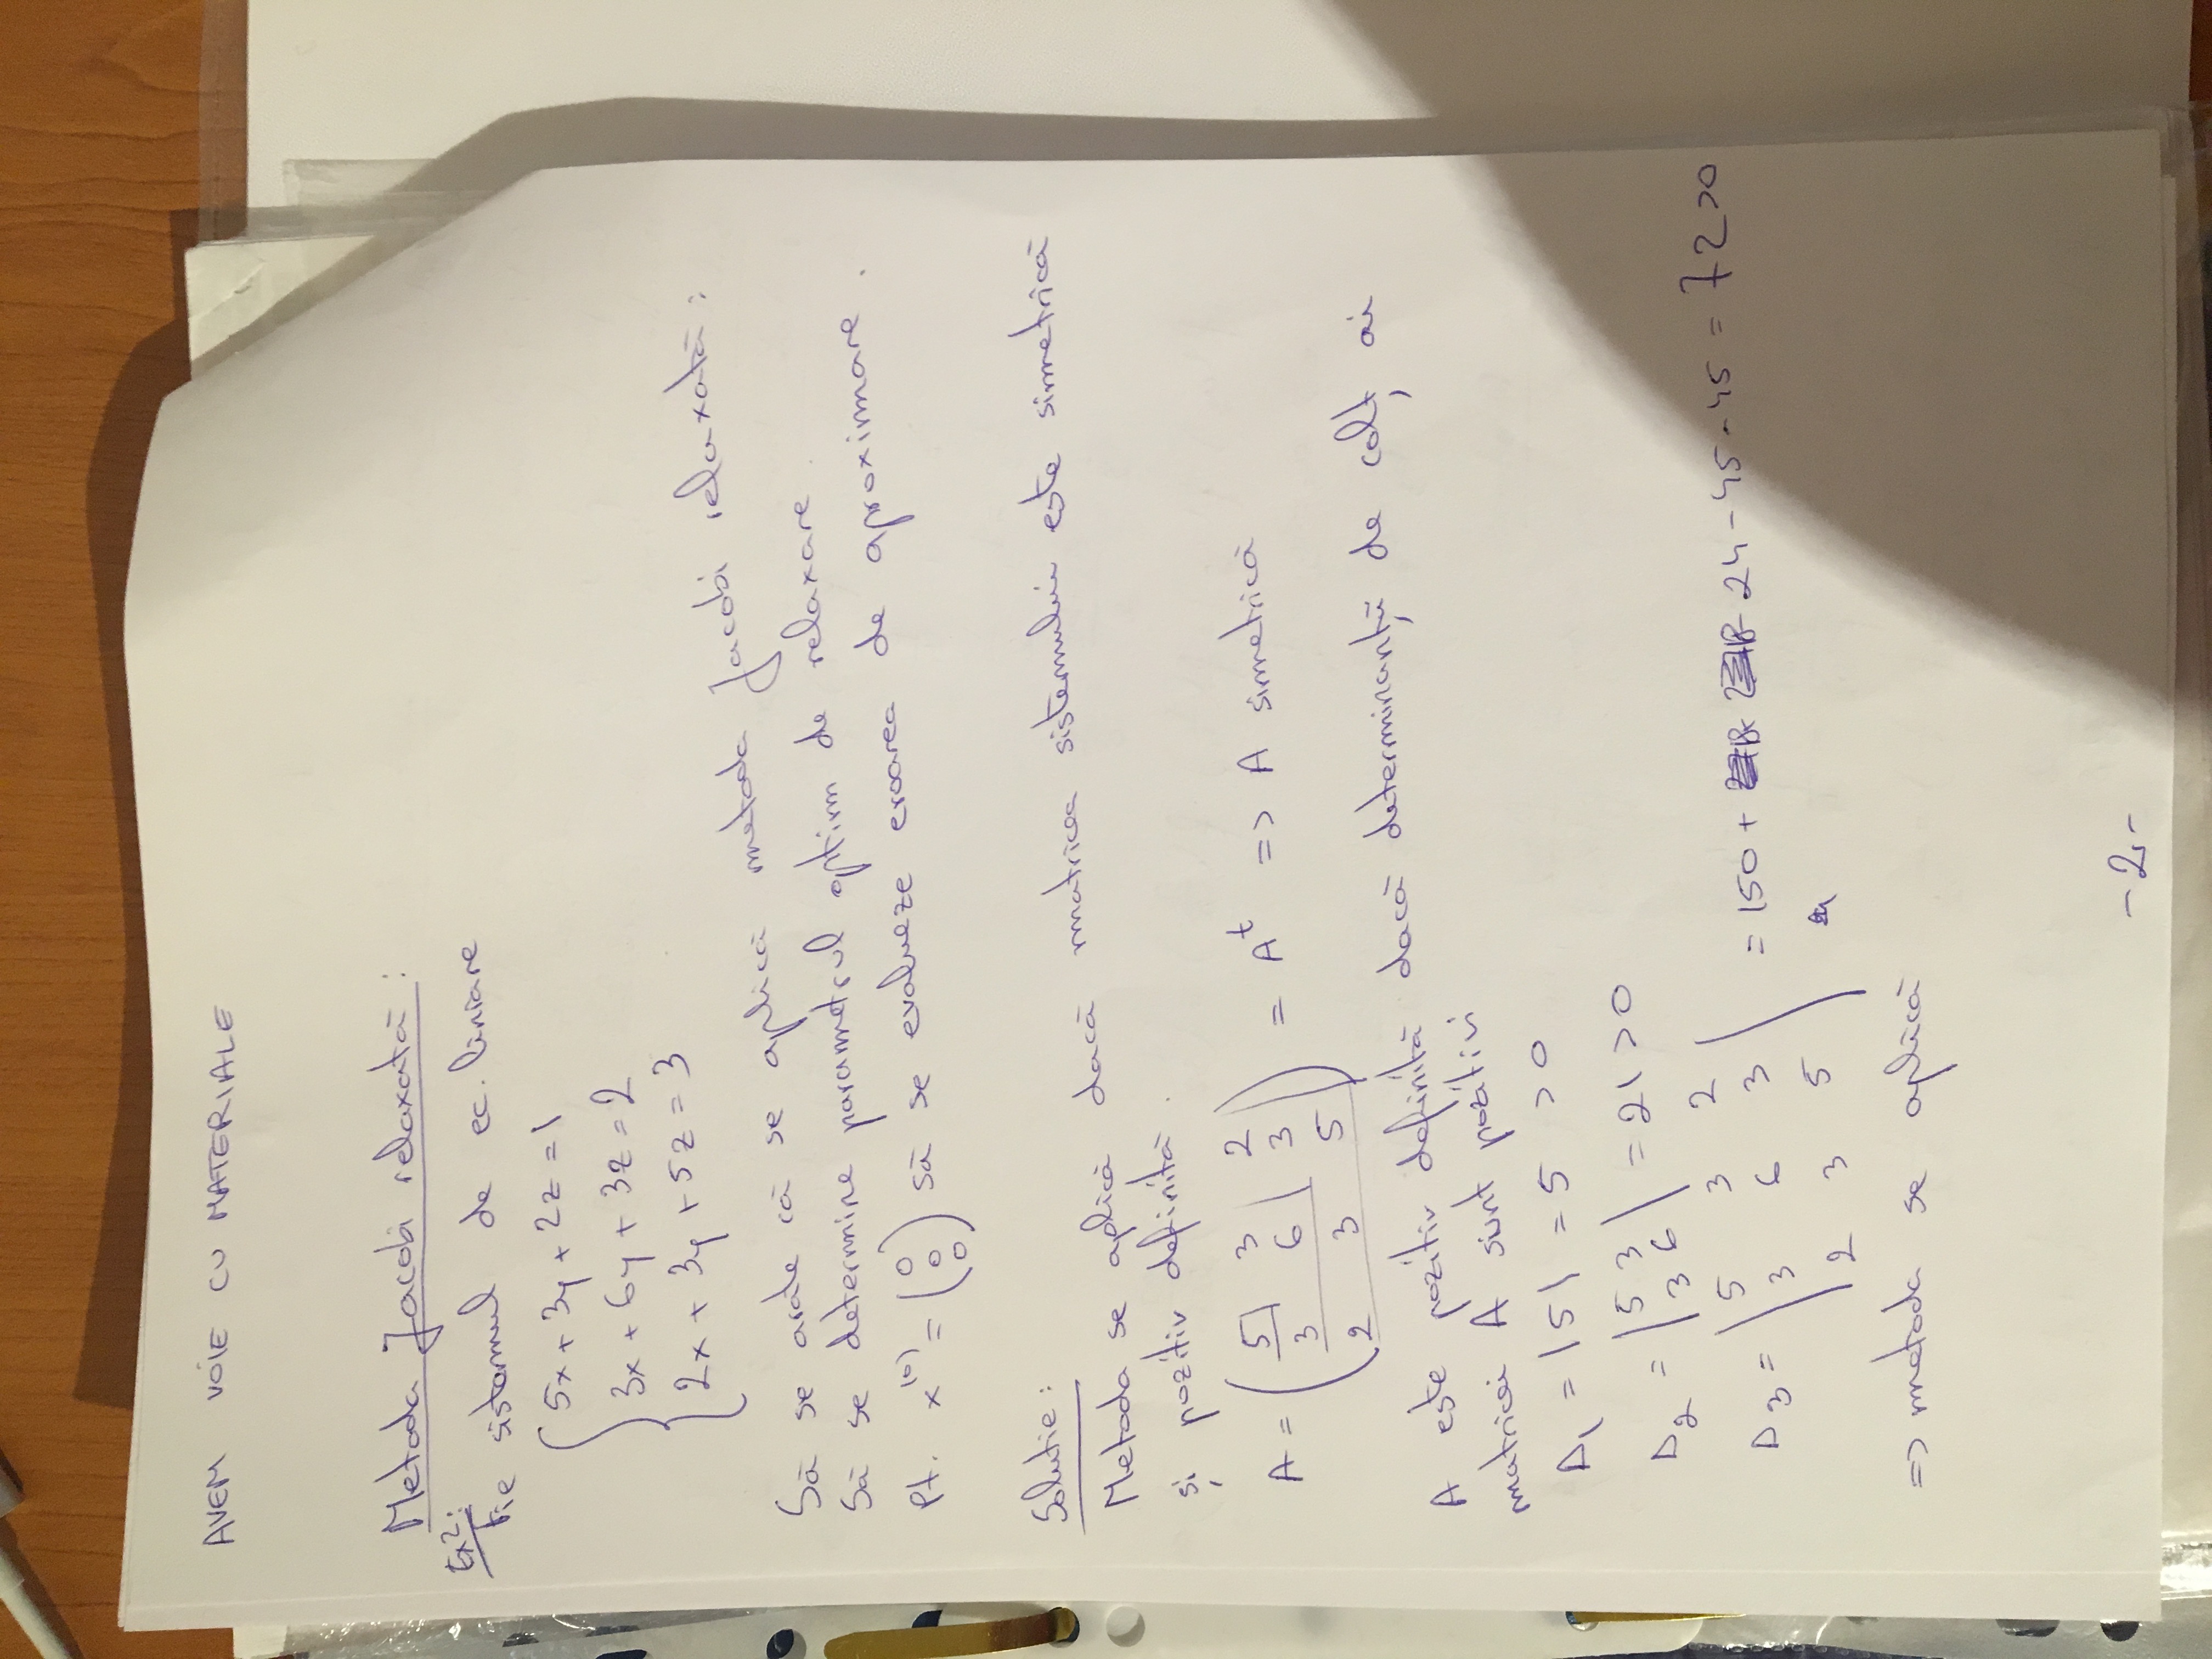 AVEM VOIE CU MATERIALE
Metoda Jacobi relaxată:
Ex2:
Fie sistemul de ec. liniare
5x + 3y + 2z = 1
3x + 6y + 3z = 2
2x + 3y + 5z = 3
Să se arate că se aplică metoda Jacobi relaxată;
Să se determine parametrul optim de relaxare.
Pt. x⁽⁰⁾ = (0 0 0) să se evalueze eroarea de aproximare.
Soluție:
Metoda se aplică dacă matricea sistemului este simetrică
și pozitiv definită.
A = (5 3 2
3 6 3
2 3 5) = Aᵗ => A simetrică
A este pozitiv definită dacă determinanții de colț ai
matricei A sunt pozitivi
Δ₁ = |5| = 5 > 0
Δ₂ = |5 3
3 6| = 21 > 0
Δ₃ = |5 3 2
3 6 3
2 3 5| = 150 + 24 - 45 - 45 = 72 > 0
=> metoda se aplică
- 2 -